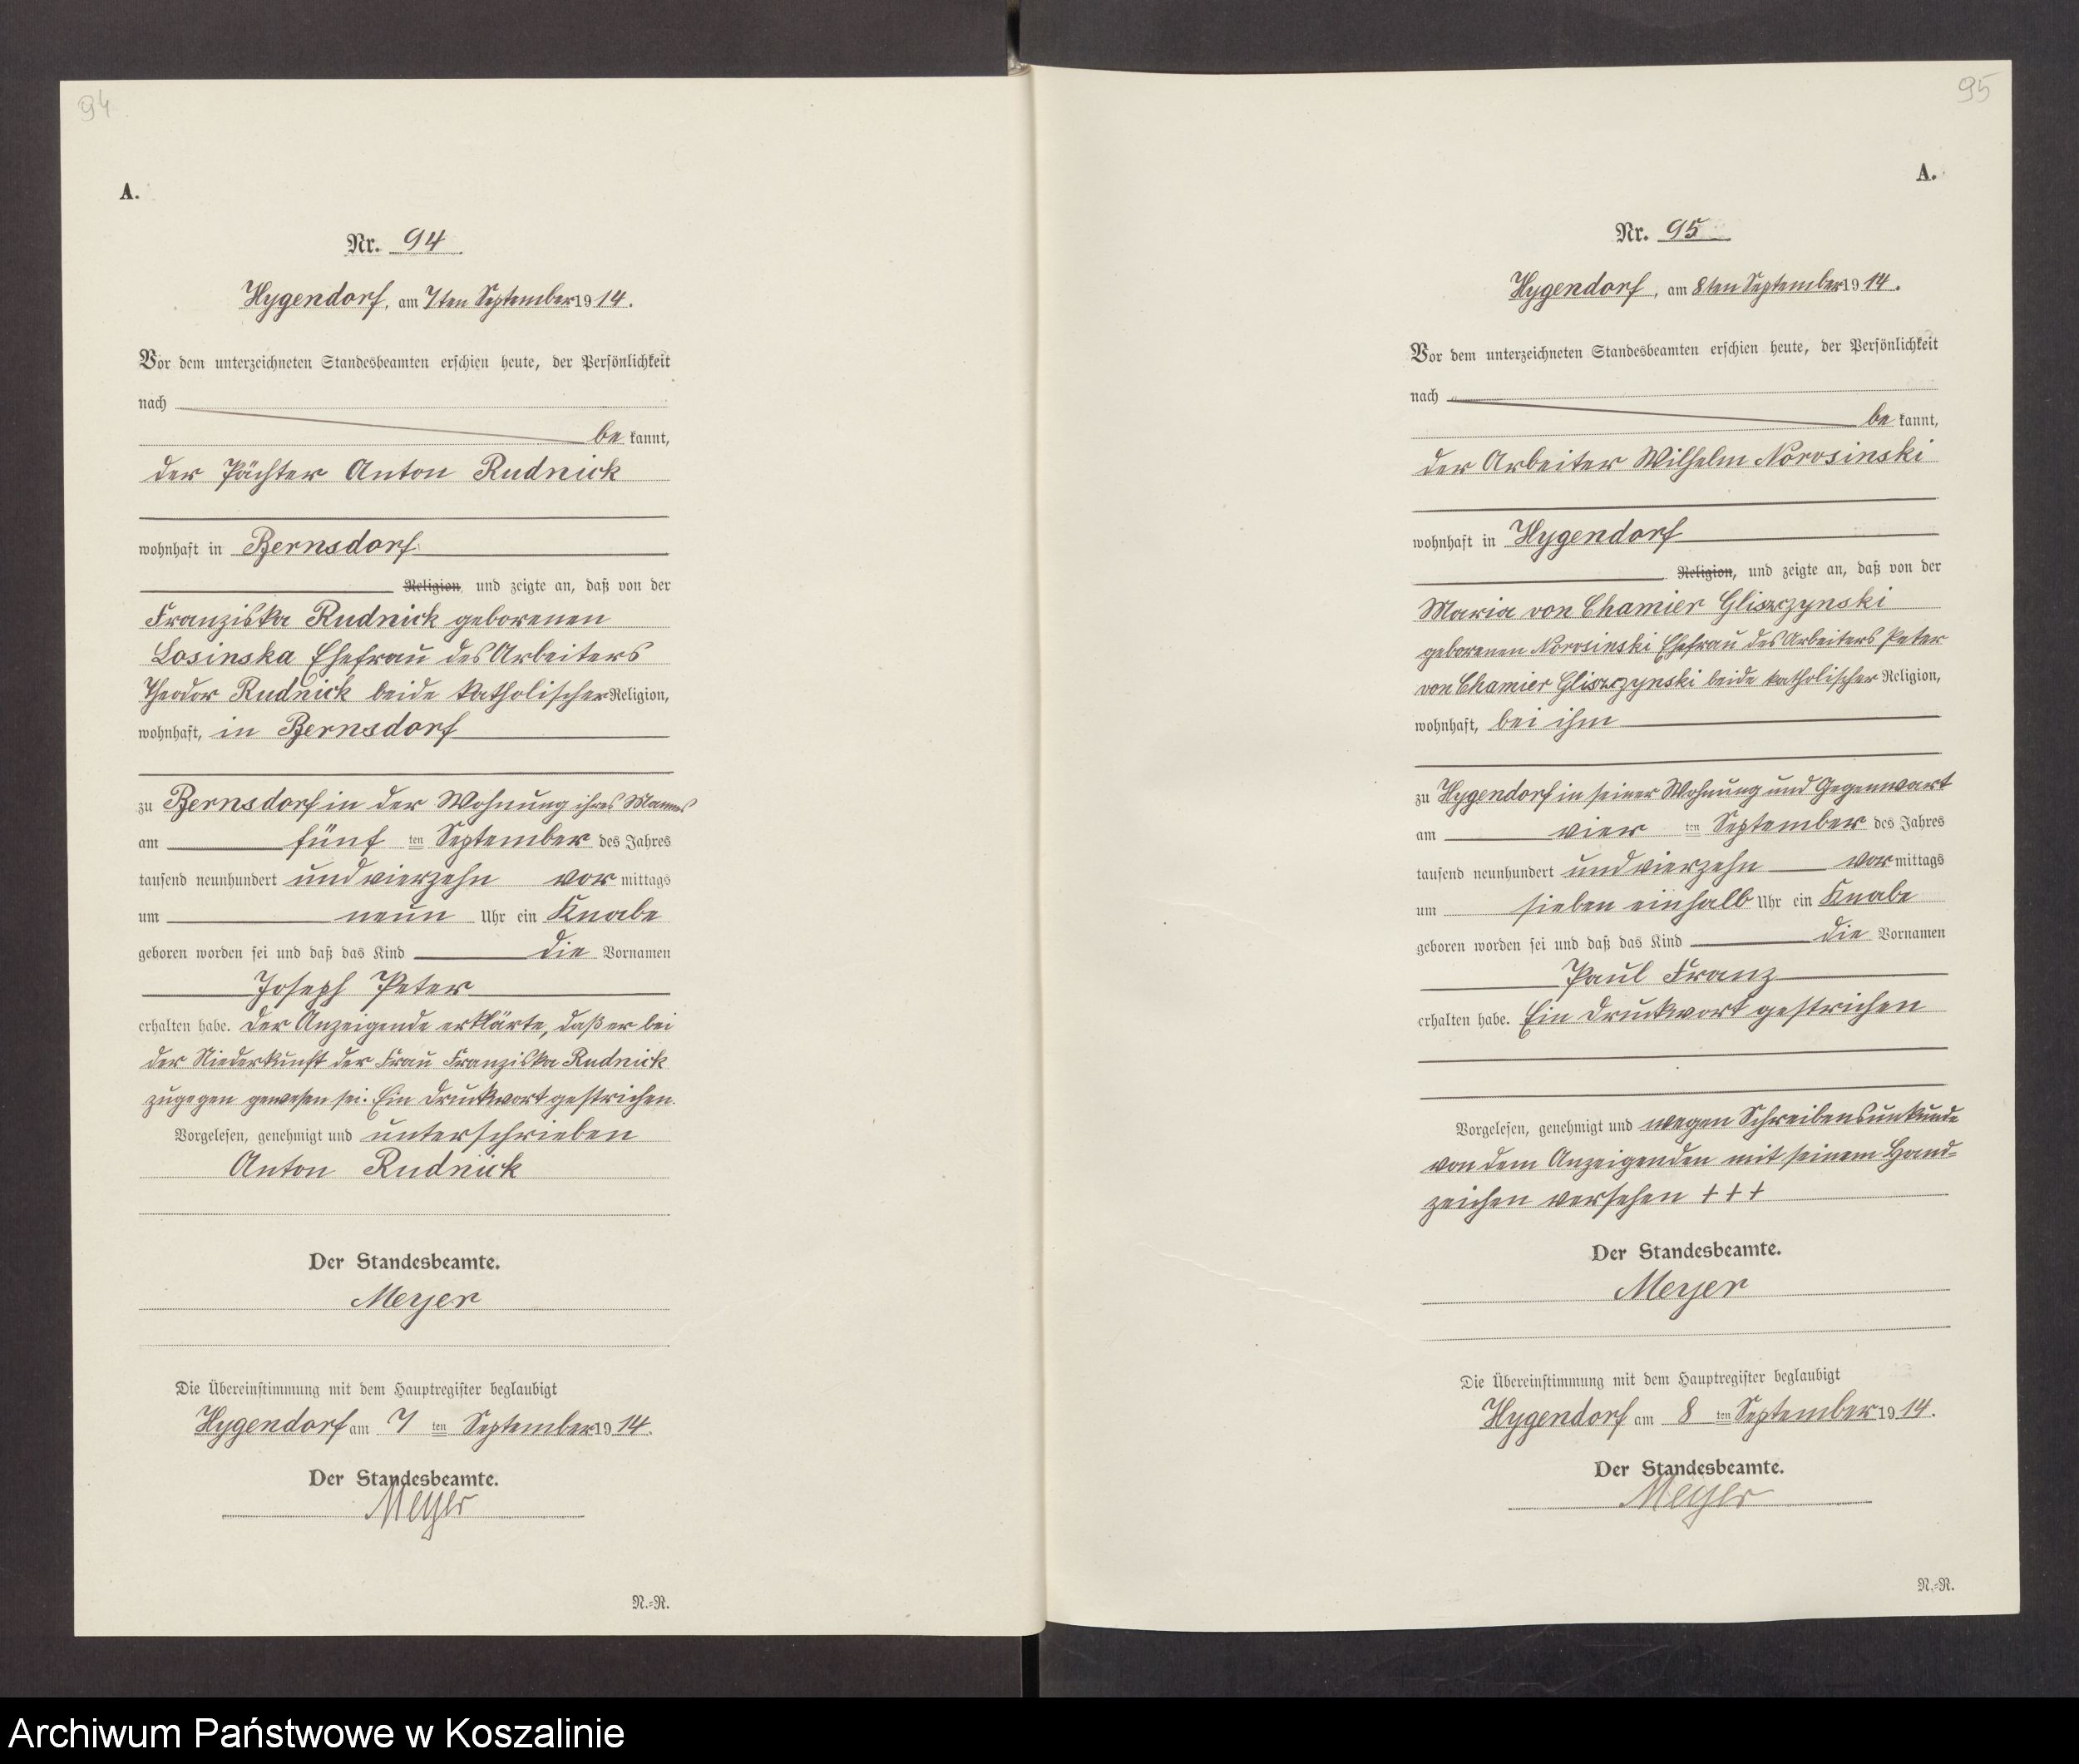 94
A.
Nr. 94
Hygendorf, am 7ten September 1914.
Vor dem unterzeichneten Standesbeamten erschien heute, der Persönlichkeit
nach
be kannt,
der Pächter Anton Rudnick
wohnhaft in Bernsdorf
Religion, und zeigte an, daß von der
Franziska Rudnick geborenen
Losinska Ehefrau des Arbeiters
Theodor Rudnick beide katholischer Religion,
wohnhaft, in Bernsdorf
zu Bernsdorf in der Wohnung ihres Mannes
am fünf ten September des Jahres
tausend neunhundert und vierzehn vor mittags
um neun Uhr ein Knabe
geboren worden sei und daß das Kind die Vornamen
Joseph Peter
erhalten habe. Der Anzeigende erklärte, daß er bei
der Niederkunft der Frau Franziska Rudnick
zugegen gewesen sei. Ein Druckwort gestrichen.
Vorgelesen, genehmigt und unterschrieben
Anton Rudnick
Der Standesbeamte.
Meyer
Die Übereinstimmung mit dem Hauptregister beglaubigt
Hygendorf am 7 ten September 1914.
Der Standesbeamte.
Meyer
N.=R.
95
A.
Nr. 95
Hygendorf, am 8ten September 1914.
Vor dem unterzeichneten Standesbeamten erschien heute, der Persönlichkeit
nach
be kannt,
der Arbeiter Wilhelm Norosinski
wohnhaft in Hygendorf
Religion, und zeigte an, daß von der
Maria von Chamier Gliszczynski
geborenen Norosinski Ehefrau des Arbeiters Peter
von Chamier Gliszczynski beide katholischer Religion,
wohnhaft, bei ihm
zu Hygendorf in seiner Wohnung und Gegenwart
am vier ten September des Jahres
tausend neunhundert und vierzehn vor mittags
um sieben einhalb Uhr ein Knabe
geboren worden sei und daß das Kind die Vornamen
Paul Franz
erhalten habe. Ein Druckwort gestrichen
Vorgelesen, genehmigt und wegen Schreibensunkunde
von dem Anzeigenden mit seinem Hand=
zeichen versehen + + +
Der Standesbeamte.
Meyer
Die Übereinstimmung mit dem Hauptregister beglaubigt
Hygendorf am 8 ten September 1914.
Der Standesbeamte.
Meyer
N.=R.
Archiwum Państwowe w Koszalinie